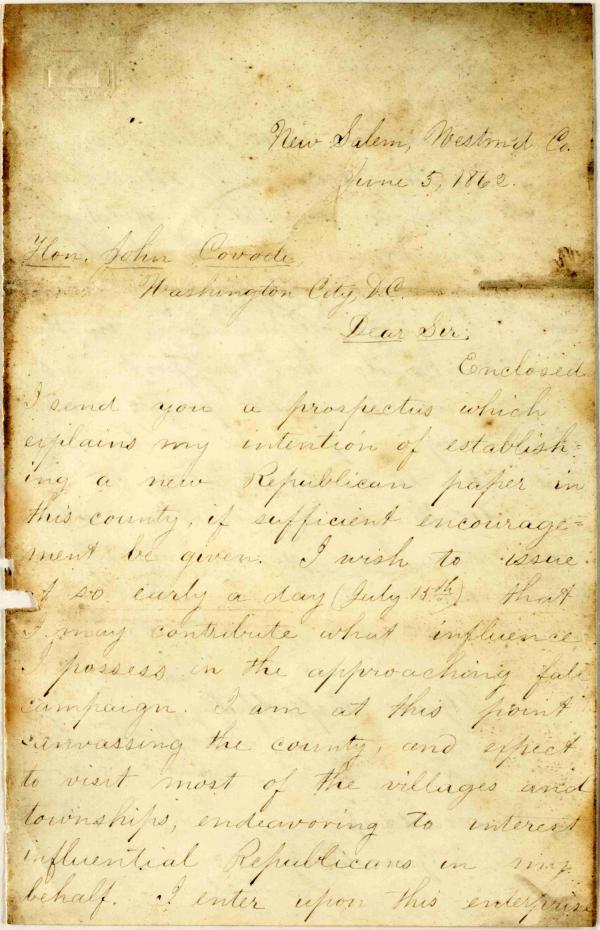 New Salem, Westm'd Co.
June 5, 1862.
Hon. John Covode
Washington City, D.C.
Dear Sir,
Enclosed
I send you a prospectus which
explains my intention of establish=
ing a new Republican paper in
this county, if sufficient encourage=
ment be given. I wish to issue
it so early a day (July 15th) that
I may contribute what influence
I possess in the approaching fall
campaign. I am at this point
canvassing the county, and expect
to visit most of the villages and
townships, endeavoring to interest
influential Republicans in my
behalf. I enter upon this enterprise